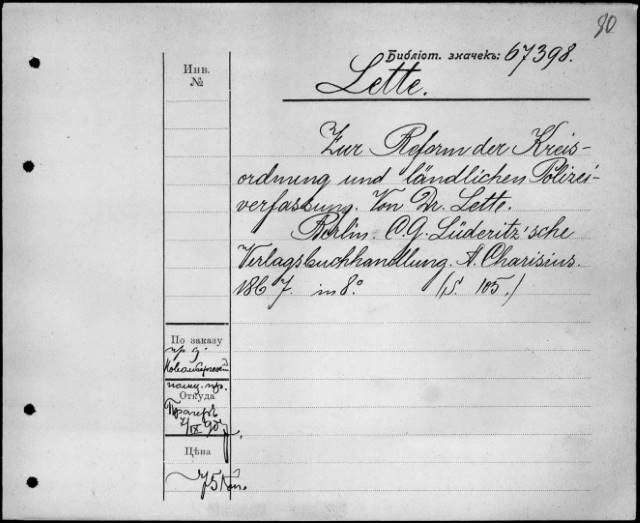 80
Библіот. значекъ: 67398.
Инв.
№
Lette.
Zur Reform der Kreis-
ordnung und ländlichen Polizei-
verfassung. Von Dr. Lette.
Berlin. C. G. Lüderitz'sche
Verlagsbuchhandlung. A. Charisius.
1867. in 8.° (S. 105.)
По заказу
Откуда
Цѣна
75